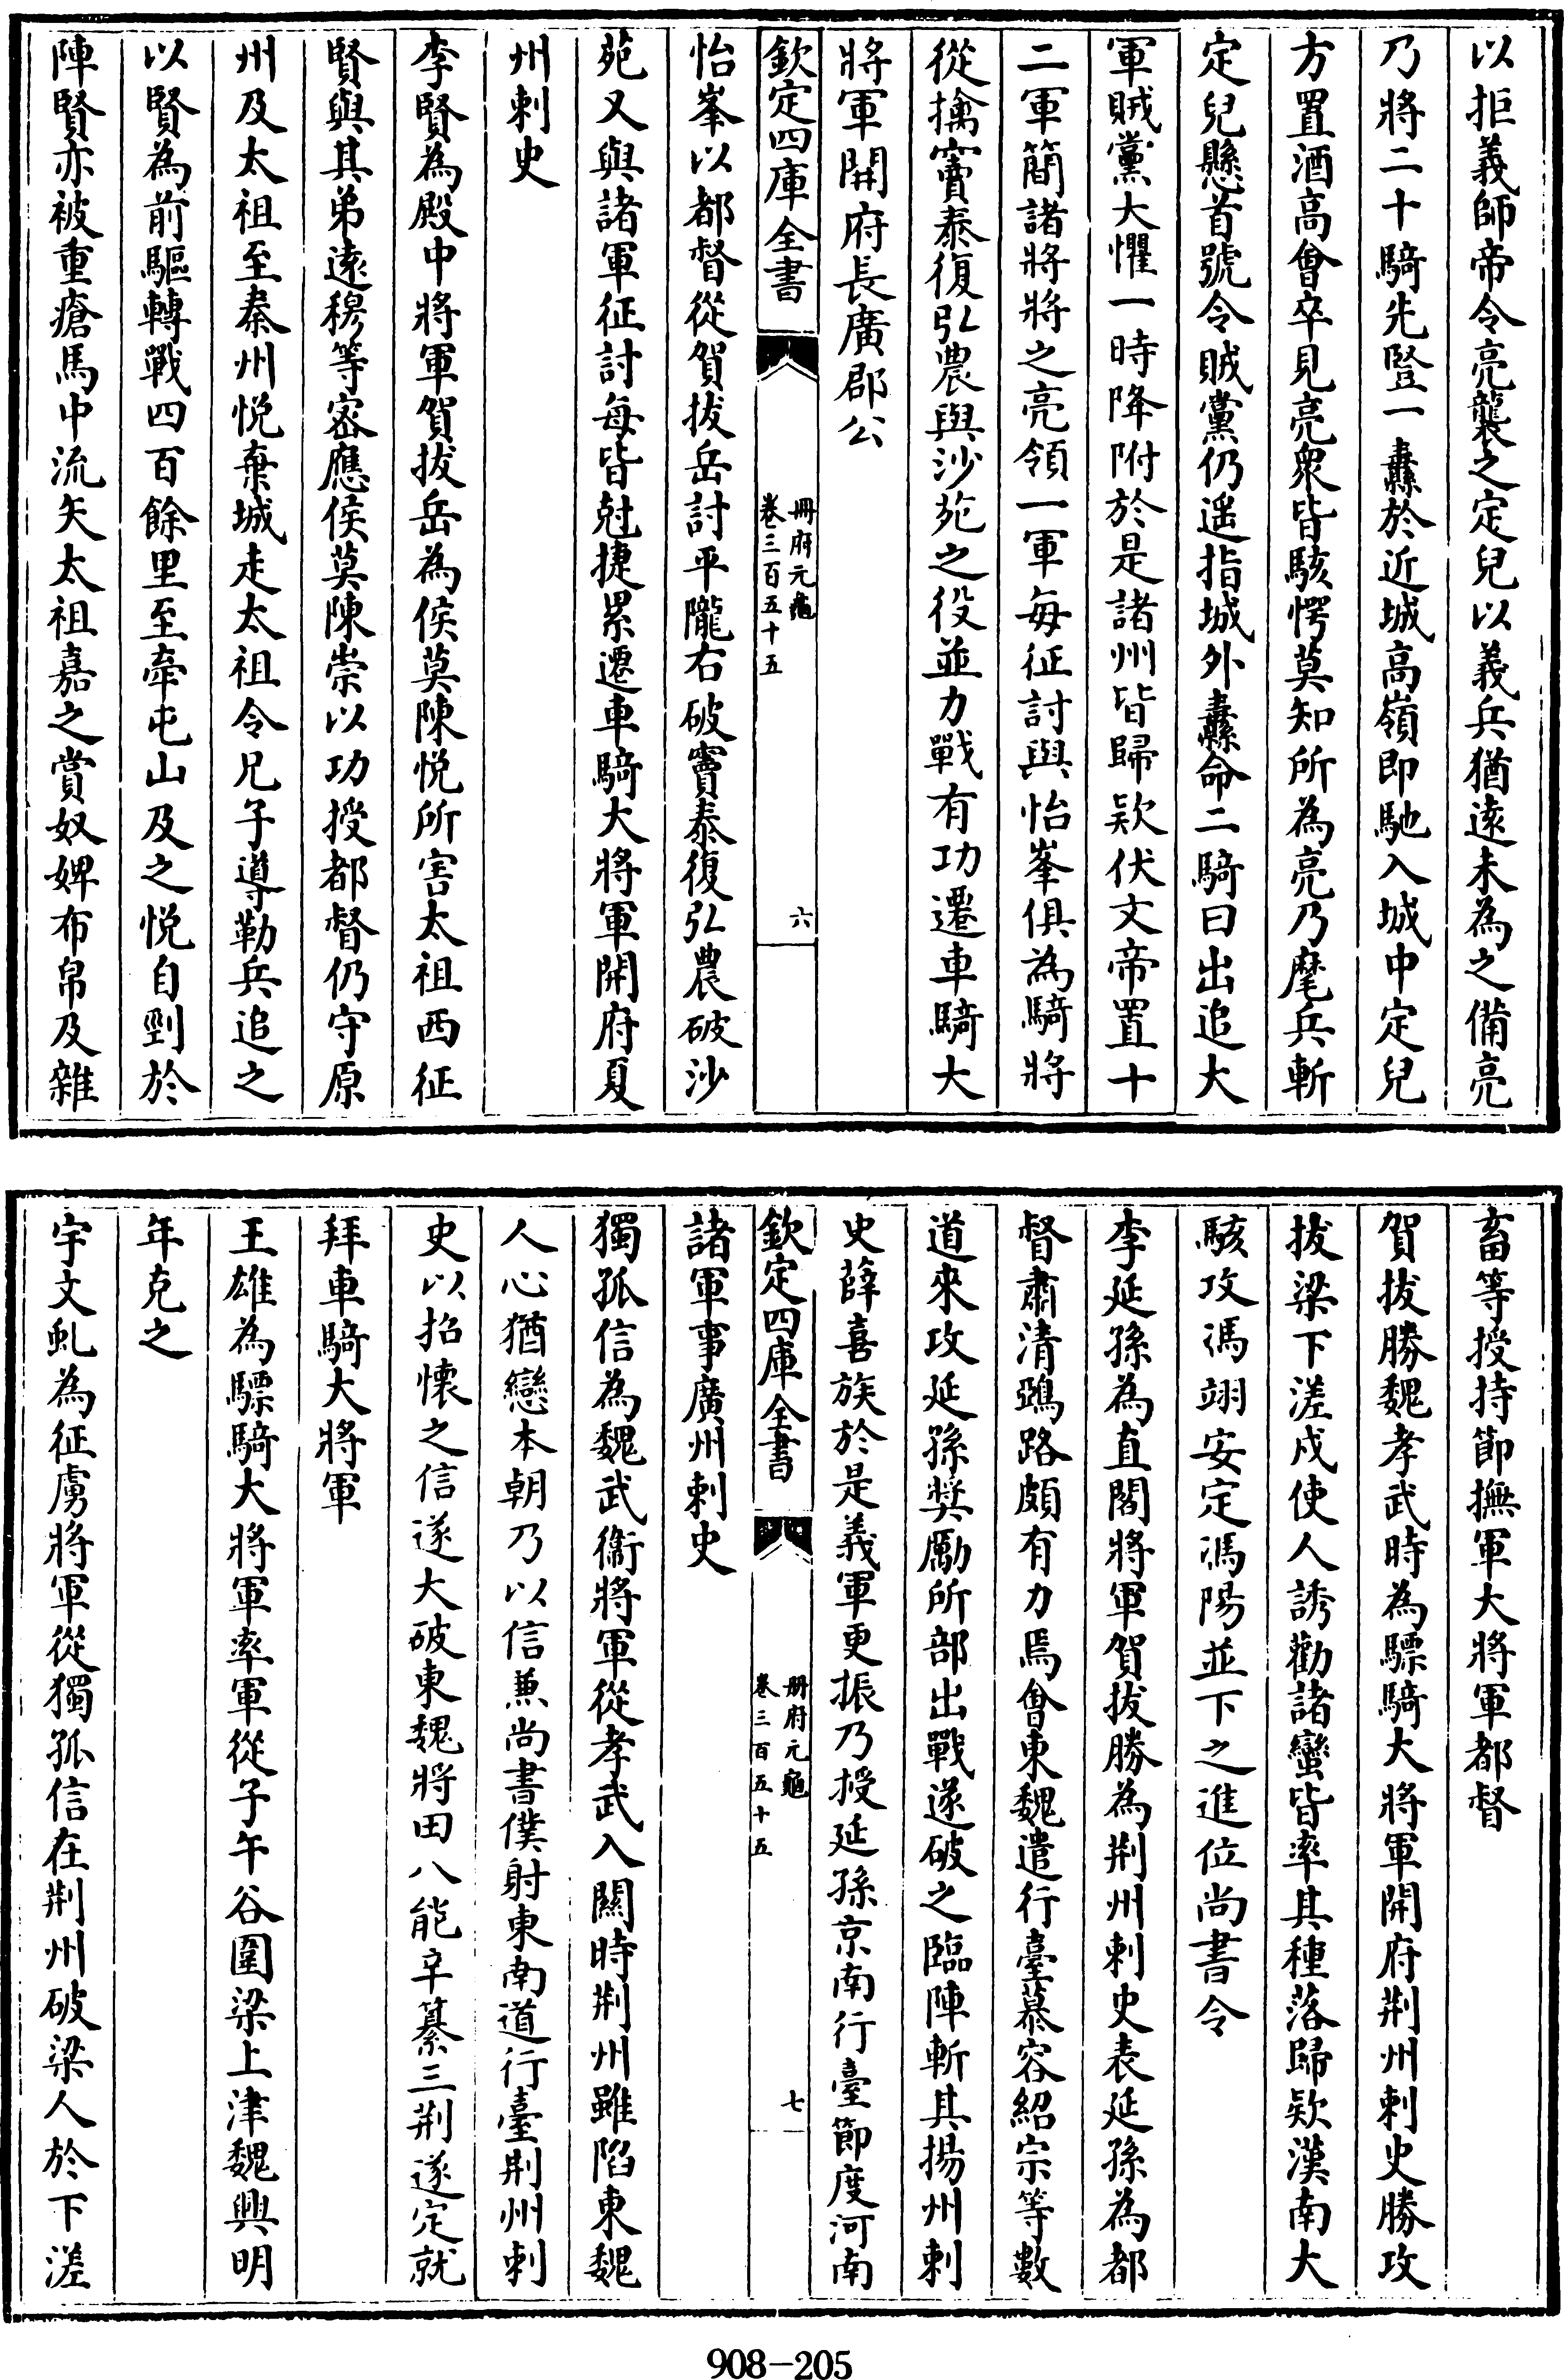 以拒義師帝令亮襲之定兒以義兵猶遠未為之備亮
乃將二十騎先豎一纛於近城高嶺即馳入城中定兒
方置酒高㑹卒見亮衆皆駭愕莫知所為亮乃麾兵斬
定兒懸首號令賊黨仍遥指城外纛命二騎曰出追大
軍賊黨大懼一時降附於是諸州皆歸欵伏文帝置十
二軍簡諸將將之亮領一軍每征討與怡峯俱為騎將
從擒竇泰復弘農與沙苑之役並力戰有功遷車騎大
將軍開府長廣郡公
欽定四庫全書
冊府元龜
卷三百五十五
六
怡峯以都督從賀拔岳討平隴右破竇泰復弘農破沙
苑又與諸軍征討每皆尅捷累遷車騎大將軍開府夏
州刺史
李賢為殿中將軍賀拔岳為侯莫陳悅所害太祖西征
賢與其弟遠穆等密應侯莫陳崇以功授都督仍守原
州及太祖至秦州悅棄城走太祖令兄子導勒兵追之
以賢為前驅轉戰四百餘里至牽屯山及之悅自剄於
陣賢亦被重瘡馬中流矢太祖嘉之賞奴婢布帛及雜
畜等授持節撫軍大將軍都督
賀拔勝魏孝武時為驃騎大將軍開府荆州刺史勝攻
拔梁下溠戍使人誘勸諸蠻皆率其種落歸欵漢南大
駭攻馮翊安定馮陽並下之進位尚書令
李延孫為直閤將軍賀拔勝為荆州刺史表延孫為都
督肅清鵶路頗有力焉㑹東魏遣行臺慕容紹宗等數
道來攻延孫奬勵所部出戰遂破之臨陣斬其揚州刺
史薛喜族於是義軍更振乃授延孫京南行臺節度河南
欽定四庫全書
冊府元龜
卷三百五十五
七
諸軍事廣州刺史
獨孤信為魏武衞將軍從孝武入關時荆州雖陷東魏
人心猶戀本朝乃以信兼尚書僕射東南道行臺荆州刺
史以招懐之信遂大破東魏將田八能辛纂三荆遂定就
拜車騎大將軍
王雄為驃騎大將軍率軍從子午谷圍梁上津魏興明
年克之
宇文虬為征虜將軍從獨孤信在荆州破梁人於下溠
908-205